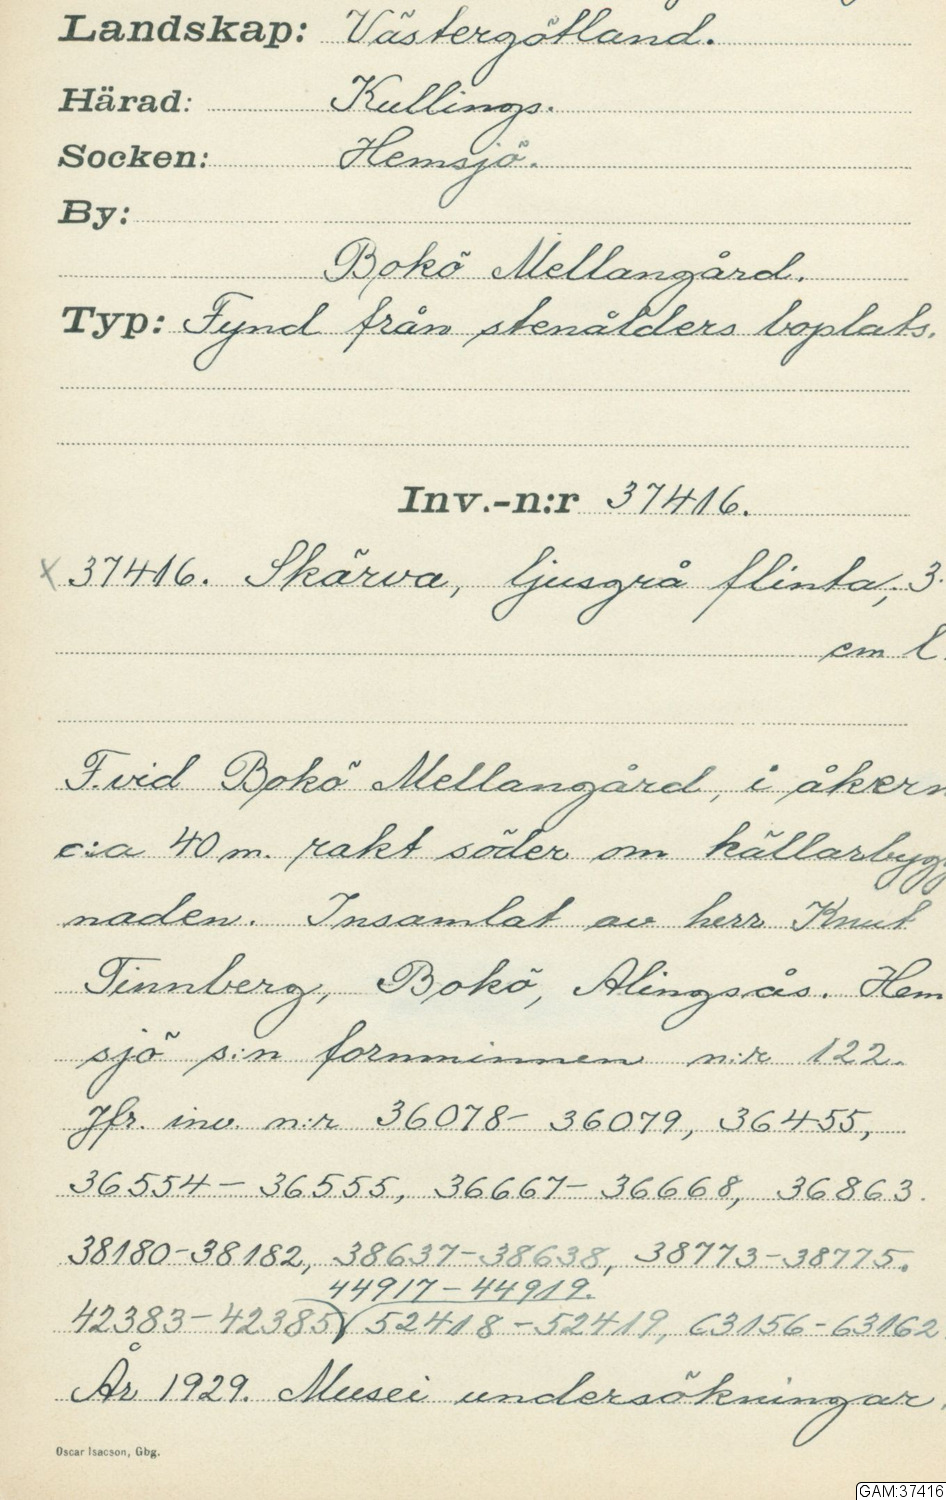 Landskap: Västergötland.
Härad: Kullings.
Socken: Hemsjö.
By:
Bokö Mellangård.
Typ: Fynd från stenålders boplats.
Inv.-n:r 37416.
x 37416. Skärva, ljusgrå flinta, 3.
cm l.
F. vid Bokö Mellangård, i åkern
c:a 40 m. rakt söder om källarbygg
naden. Insamlat av herr Knut
Tinnberg, Bokö, Alingsås. Hem
sjö s:n fornminnen n:r 122.
Jfr. inv. n:r 36078- 36079, 36455,
36554- 36555, 36667- 36668, 36863.
38180-38182, 38637-38638, 38773-38775.
44917-44919.
42383-42385, 52418-52419, 63156-63162
År 1929. Musei undersökningar.
Oscar Isacson, Gbg.
GAM:37416